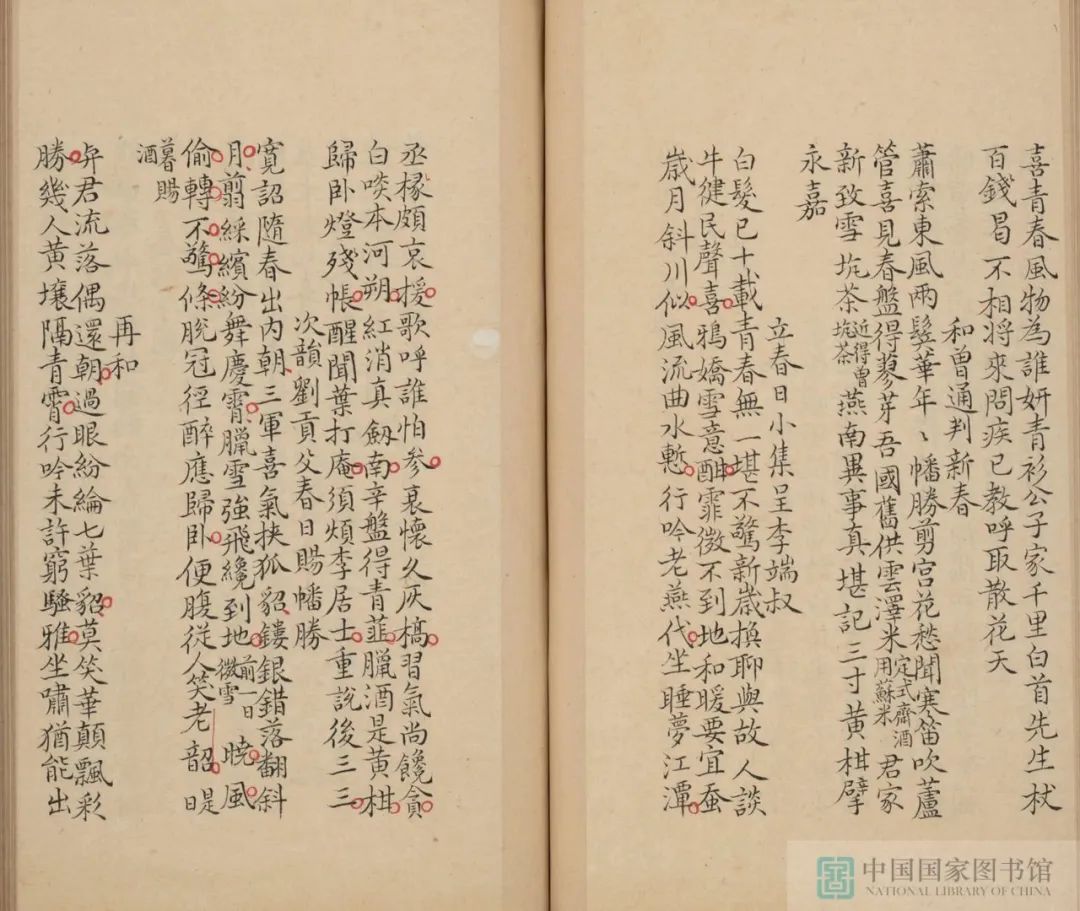 喜青春風物為誰妍青衫公子家千里白首先生杖
百錢曷不相將來問疾已教呼取散花天
和曾通判新春
蕭索東風兩鬢華年〻幡勝剪宮花愁聞寒笛吹蘆
管喜見春盤得蓼芽吾國舊供雲澤米定式齊酒用蘇米君家
新致雪坑茶近得曾坑茶燕南異事真堪記三寸黃柑擘
永嘉
立春日小集呈李端叔
白髮已十載青春無一堪不驚新歲換聊與故人談
牛健民聲喜鴉嬌雪意酣霏微不到地和暖要宜蚕
歲月斜川似風流曲水慙行吟老燕代坐睡夢江潭
丞掾頗哀援歌呼誰怕參衰懷久灰槁習氣尚饞貪
白啖本河朔紅消真劔南辛盤得青韮臘酒是黃柑
歸卧燈殘帳醒聞葉打庵須煩李居士重說後三三
次韻劉貢父春日賜幡勝
寬詔隨春出內朝三軍喜氣挾狐貂鏤銀錯落翻斜
月剪綵繽紛舞慶霄臘雪強飛纔到地前一日微雪曉風
偷轉不驚條脫冠徑醉應歸卧便腹從人笑老韶是日
暮賜酒
再和
君流落偶還朝過眼紛綸七葉貂莫笑華顛飄彩
勝幾人黃壤隔青霄行吟未許窮騷雅坐嘯猶能出
中国国家图书馆
NATIONAL LIBRARY OF CHINA